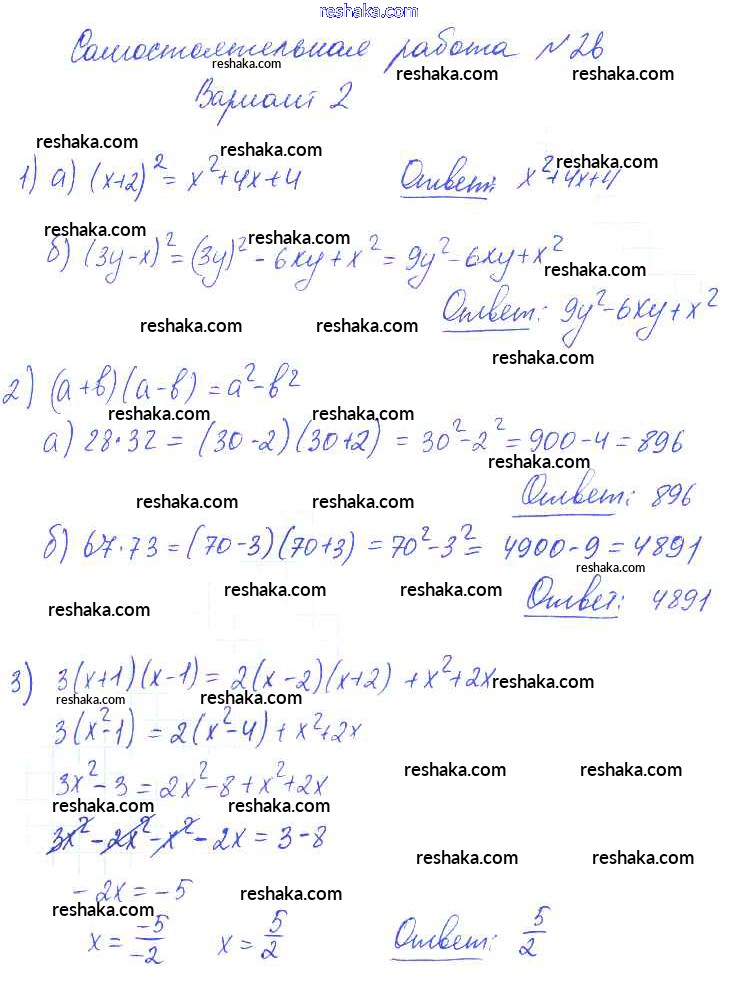 reshaka.com
Самостоятельная работа №26
reshaka.com reshaka.com reshaka.com
Вариант 2
reshaka.com reshaka.com reshaka.com
1) а) (x+2)² = x²+4x+4 Ответ: x²+4x+4
reshaka.com reshaka.com
б) (3y-x)² = (3y)² - 6xy + x² = 9y² - 6xy + x²
reshaka.com
Ответ: 9y² - 6xy + x²
reshaka.com reshaka.com
reshaka.com
2) (a+b)(a-b) = a²-b²
reshaka.com reshaka.com
а) 28·32 = (30-2)(30+2) = 30²-2² = 900-4 = 896
reshaka.com
Ответ: 896
reshaka.com reshaka.com
б) 67·73 = (70-3)(70+3) = 70²-3² = 4900-9 = 4891
reshaka.com
reshaka.com reshaka.com reshaka.com
Ответ: 4891
3) 3(x+1)(x-1) = 2(x-2)(x+2) + x²+2x
reshaka.com
reshaka.com reshaka.com
3(x²-1) = 2(x²-4) + x²+2x
reshaka.com reshaka.com
3x²-3 = 2x²-8+x²+2x
reshaka.com reshaka.com
3x²-2x²-x²-2x = 3-8
reshaka.com reshaka.com
-2x = -5
reshaka.com reshaka.com
x = -5/-2 x = 5/2 Ответ: 5/2